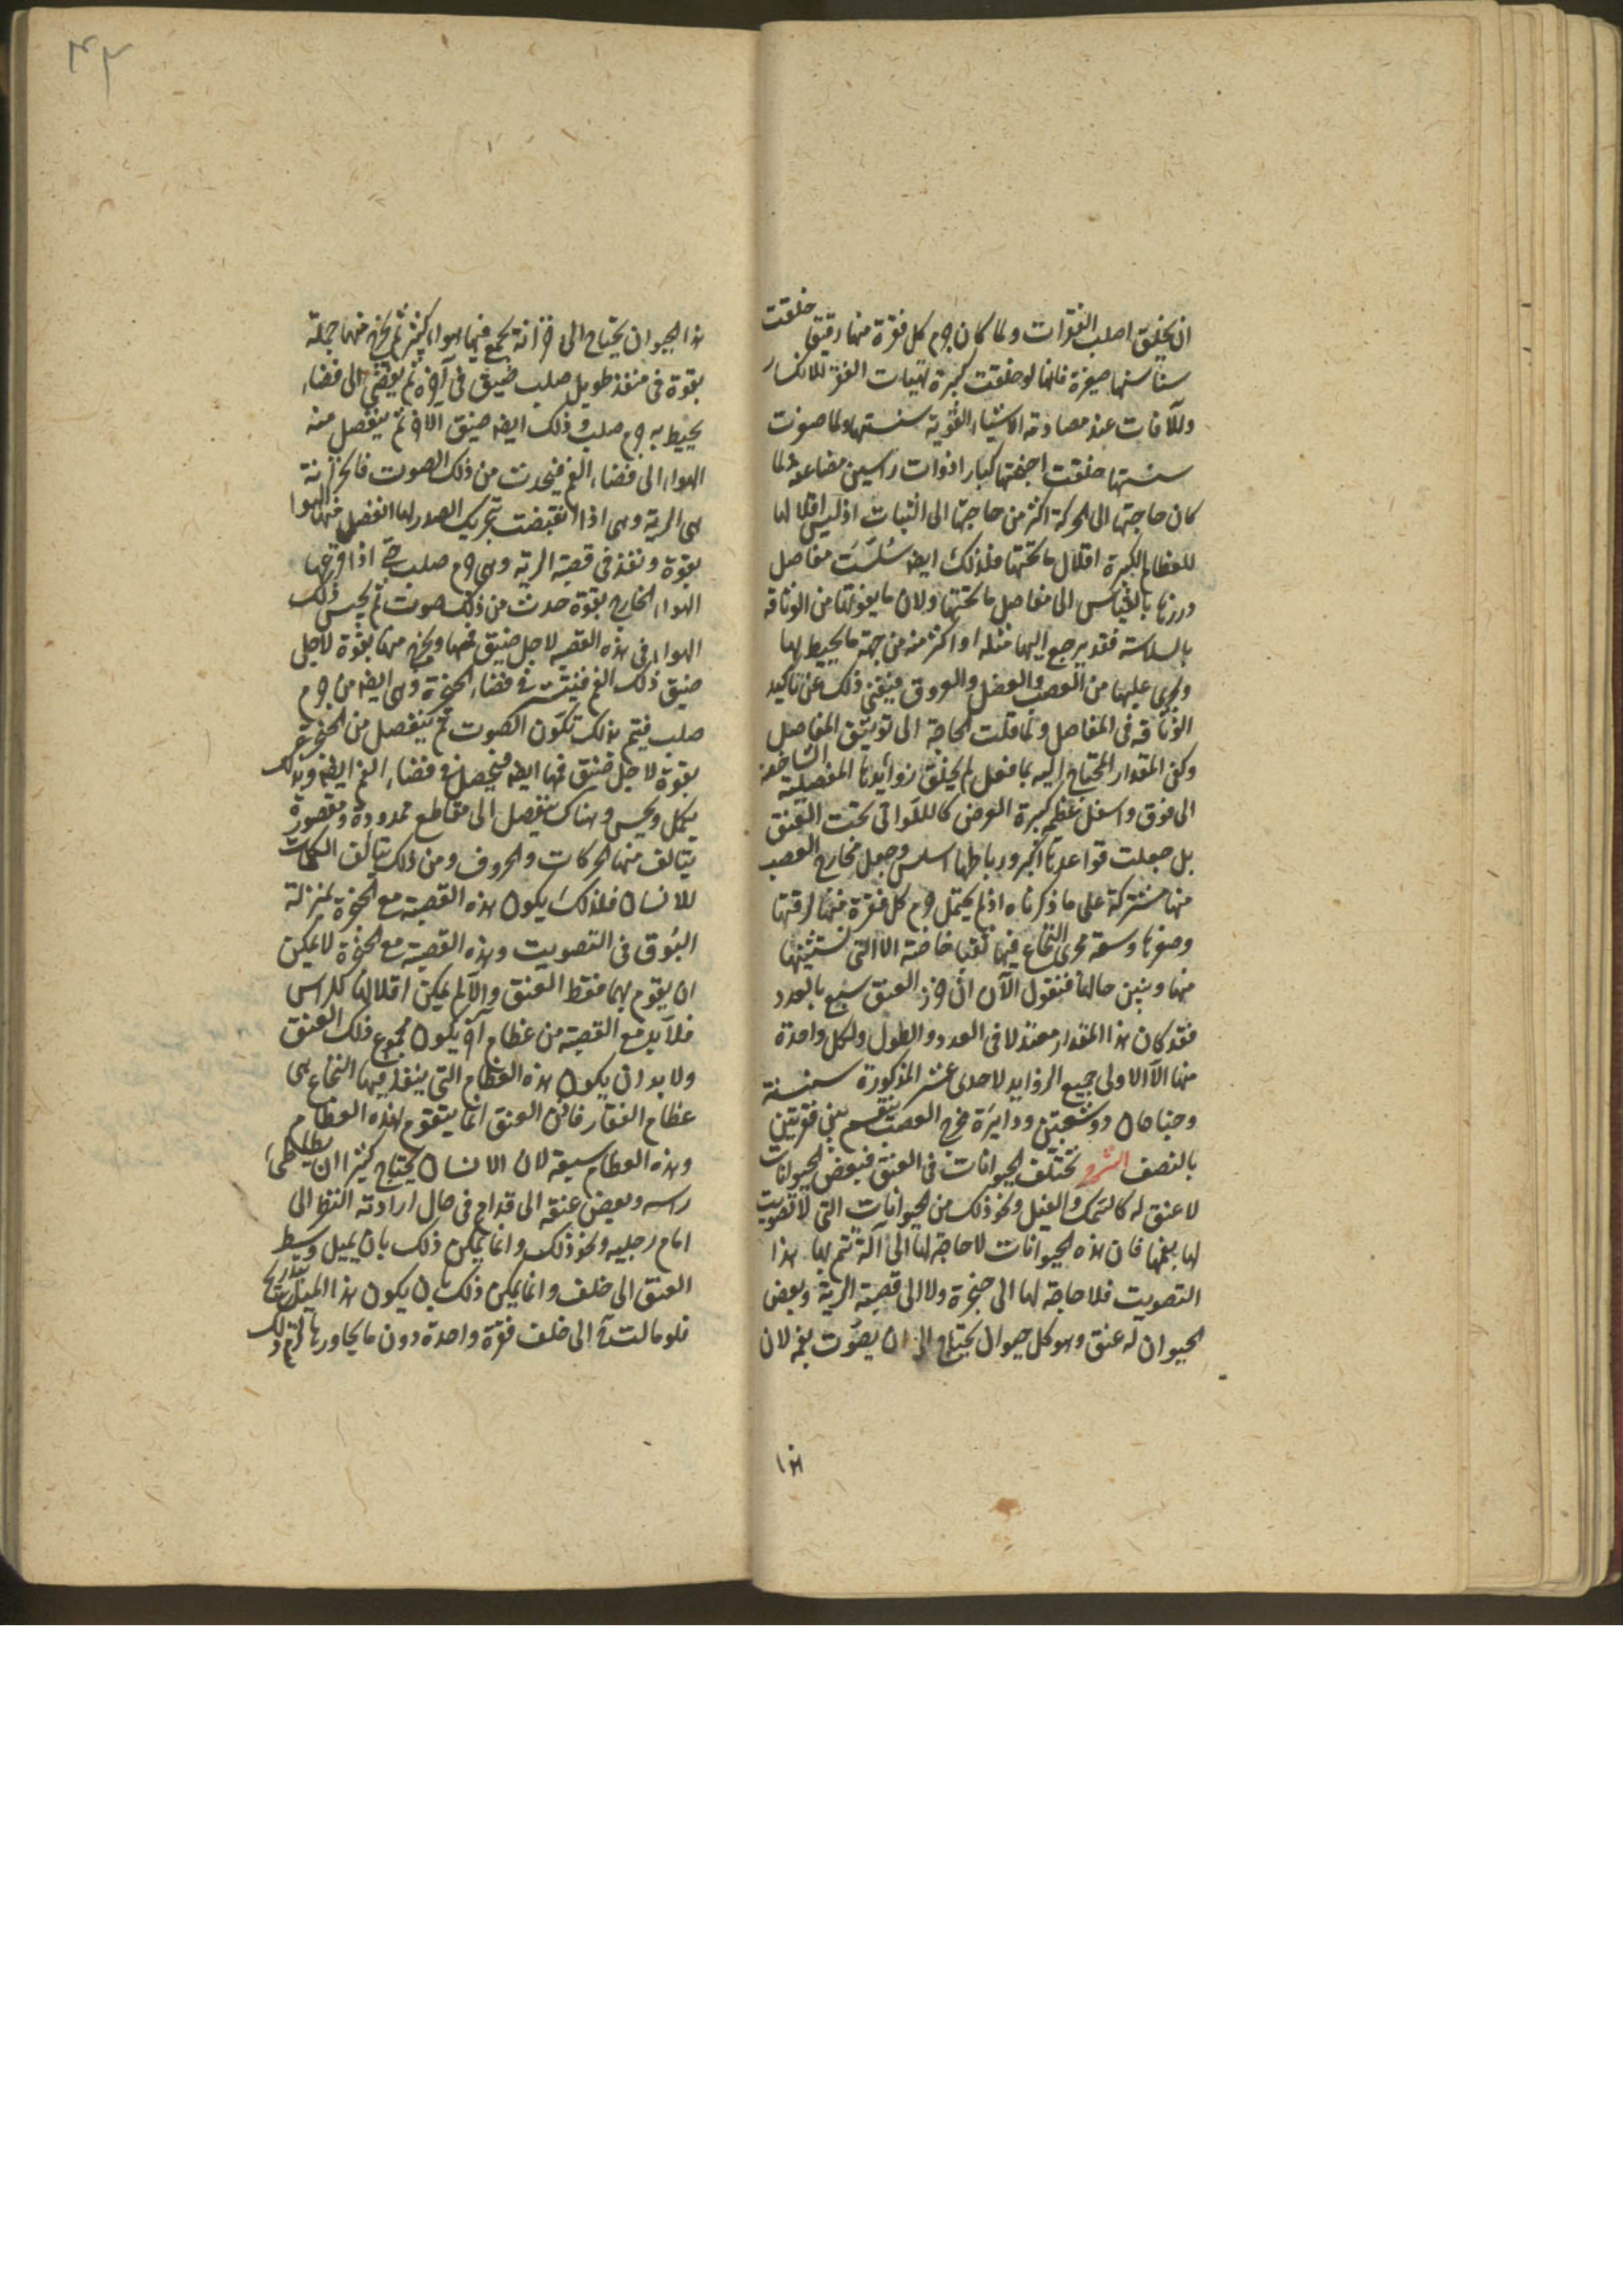 ان يخلق اصلب الفقرات ولما كان جرم كل فقرة منها رقيقا خلقت
سناسنها صغيرة فانها لو خلقت كبيرة تهيات الفقرة للانكسار
وللآفات عند مصادمة الاشياء القوية سنسنتها ولما صغرت
سنسنتها خلقت اجنحتها كبارا ذوات راسين مضاعفة ولما
كان حاجتها الى الحركة اكثر من حاجتها الى الثبات اذ ليس اقلالها
للعظام الكبيرة اقلال ما تحتها فلذلك ايضا سلست مفاصل
خرزها بالقياس الى مفاصل ما تحتها ولان ما يفوتها من الوثاقه
بالسلاسة فقد يرجع اليها مثله او اكثر منه من جهة ما يحيط بها
ويجرى عليها من العصب والعضل والعروق فيغنى ذلك عن تاكيد
الوثاقه فى المفاصل ولما قلت الحاجة الى توثيق المفاصل
وكفى المقدار المحتاج اليه بما فعل لم يخلق زوائدها المفصلية الشاخصة
الى فوق واسفل عظيمة كبيرة العرض كاللواتى تحت العنق
بل جعلت قواعدها اكبر ورباطها اسلس وجعل مخارج العصب
منها مشتركة على ما ذكرناه اذ لم يحتمل جرم كل فقرة منها لرقتها
وصغرها وسعة مجرى النخاع فيها ثقبا خاصة الا التى نستثنيها
منها ونبين حالها فنقول الآن ان خرز العنق سبع بالعدد
فقد كان هذا المقدار معتدلا فى العدد والطول ولكل واحدة
منها الا الاولى جميع الزوايد الاحدى عشر المذكورة سنسنة
وجناحان ذو شعبتين ودايرة مخرج العصب تنقسم بين فقرتين
بالنصف الشرح تختلف الحيوانات فى العنق فبعض الحيوانات
لا عنق له كالسمك والفيل ونحو ذلك من الحيوانات التى لا تصويت
لها بفمها فان هذه الحيوانات لا حاجة لها الى آلة يتم بها هذا
التصويت فلا حاجة لها الى حنجرة ولا الى قصبة الرية وبعض
الحيوان له عنق وهو كل حيوان يحتاج الى ان يصوت بفمه لان
هذا
٤٣
هذا الحيوان يحتاج الى خزانة يجمع فيها هواء كثير ثم يخرج منها جملة
بقوة فى منفذ طويل صلب ضيق فى آخره ثم يفضى الى فضاء
يحيط به جرم صلب وذلك ايضا ضيق الآخر ثم ينفصل منه
الهواء الى فضاء الفم فيحدث من ذلك الصوت فالخزانة
هى الرية وهى اذا انقبضت بتحريك الصدر لها انفصل منها الهوا
بقوة ونفذ فى قصبة الرية وهى جرم صلب حتى اذا قرعها
الهواء الخارج بقوة حدث من ذلك صوت ثم يحبس ذلك
الهواء فى هذه القصبة لاجل ضيق فمها ويخرج منها بقوة لاجل
ضيق ذلك الفم فيتشتت فى فضاء الحنجرة وهى ايضا من جرم
صلب فيتم بذلك تكون الصوت ثم ينفصل من الحنجرة
بقوة لاجل ضيق فمها ايضا فيحصل فى فضاء الفم ايضا وبذلك
يكمل ويحسن وهناك ينفصل الى مقاطع ممدودة ومقصورة
يتالف منها الحركات والحروف ومن ذلك يتالف الكلمات
للانسان فلذلك يكون هذه القصبة مع الحنجرة بمنزلة
البوق فى التصويت وهذه القصبة مع الحنجرة لا يمكن
ان يقوم بهما فقط العنق والا لم يمكن اقلالها للراس
فلا بد مع القصبة من عظام آخر يكون مجموع ذلك العنق
ولا بد ان يكون هذه العظام التى ينفذ فيها النخاع هى
عظام الفقار فاذن العنق انما يتقوم بهذه العظام
وهذه العظام سبعة لان الانسان يحتاج كثيرا ان يطاطى
راسه وبعض عنقه الى قدام فى حال ارادته النظر الى
امام رجليه ونحو ذلك وانما يمكن ذلك بان يميل وسط
العنق الى خلف وانما يمكن ذلك بان يكون هذا الميل بتدريج
فلو مالت الى خلف فقرة واحدة دون ما يجاورها لزم ذلك